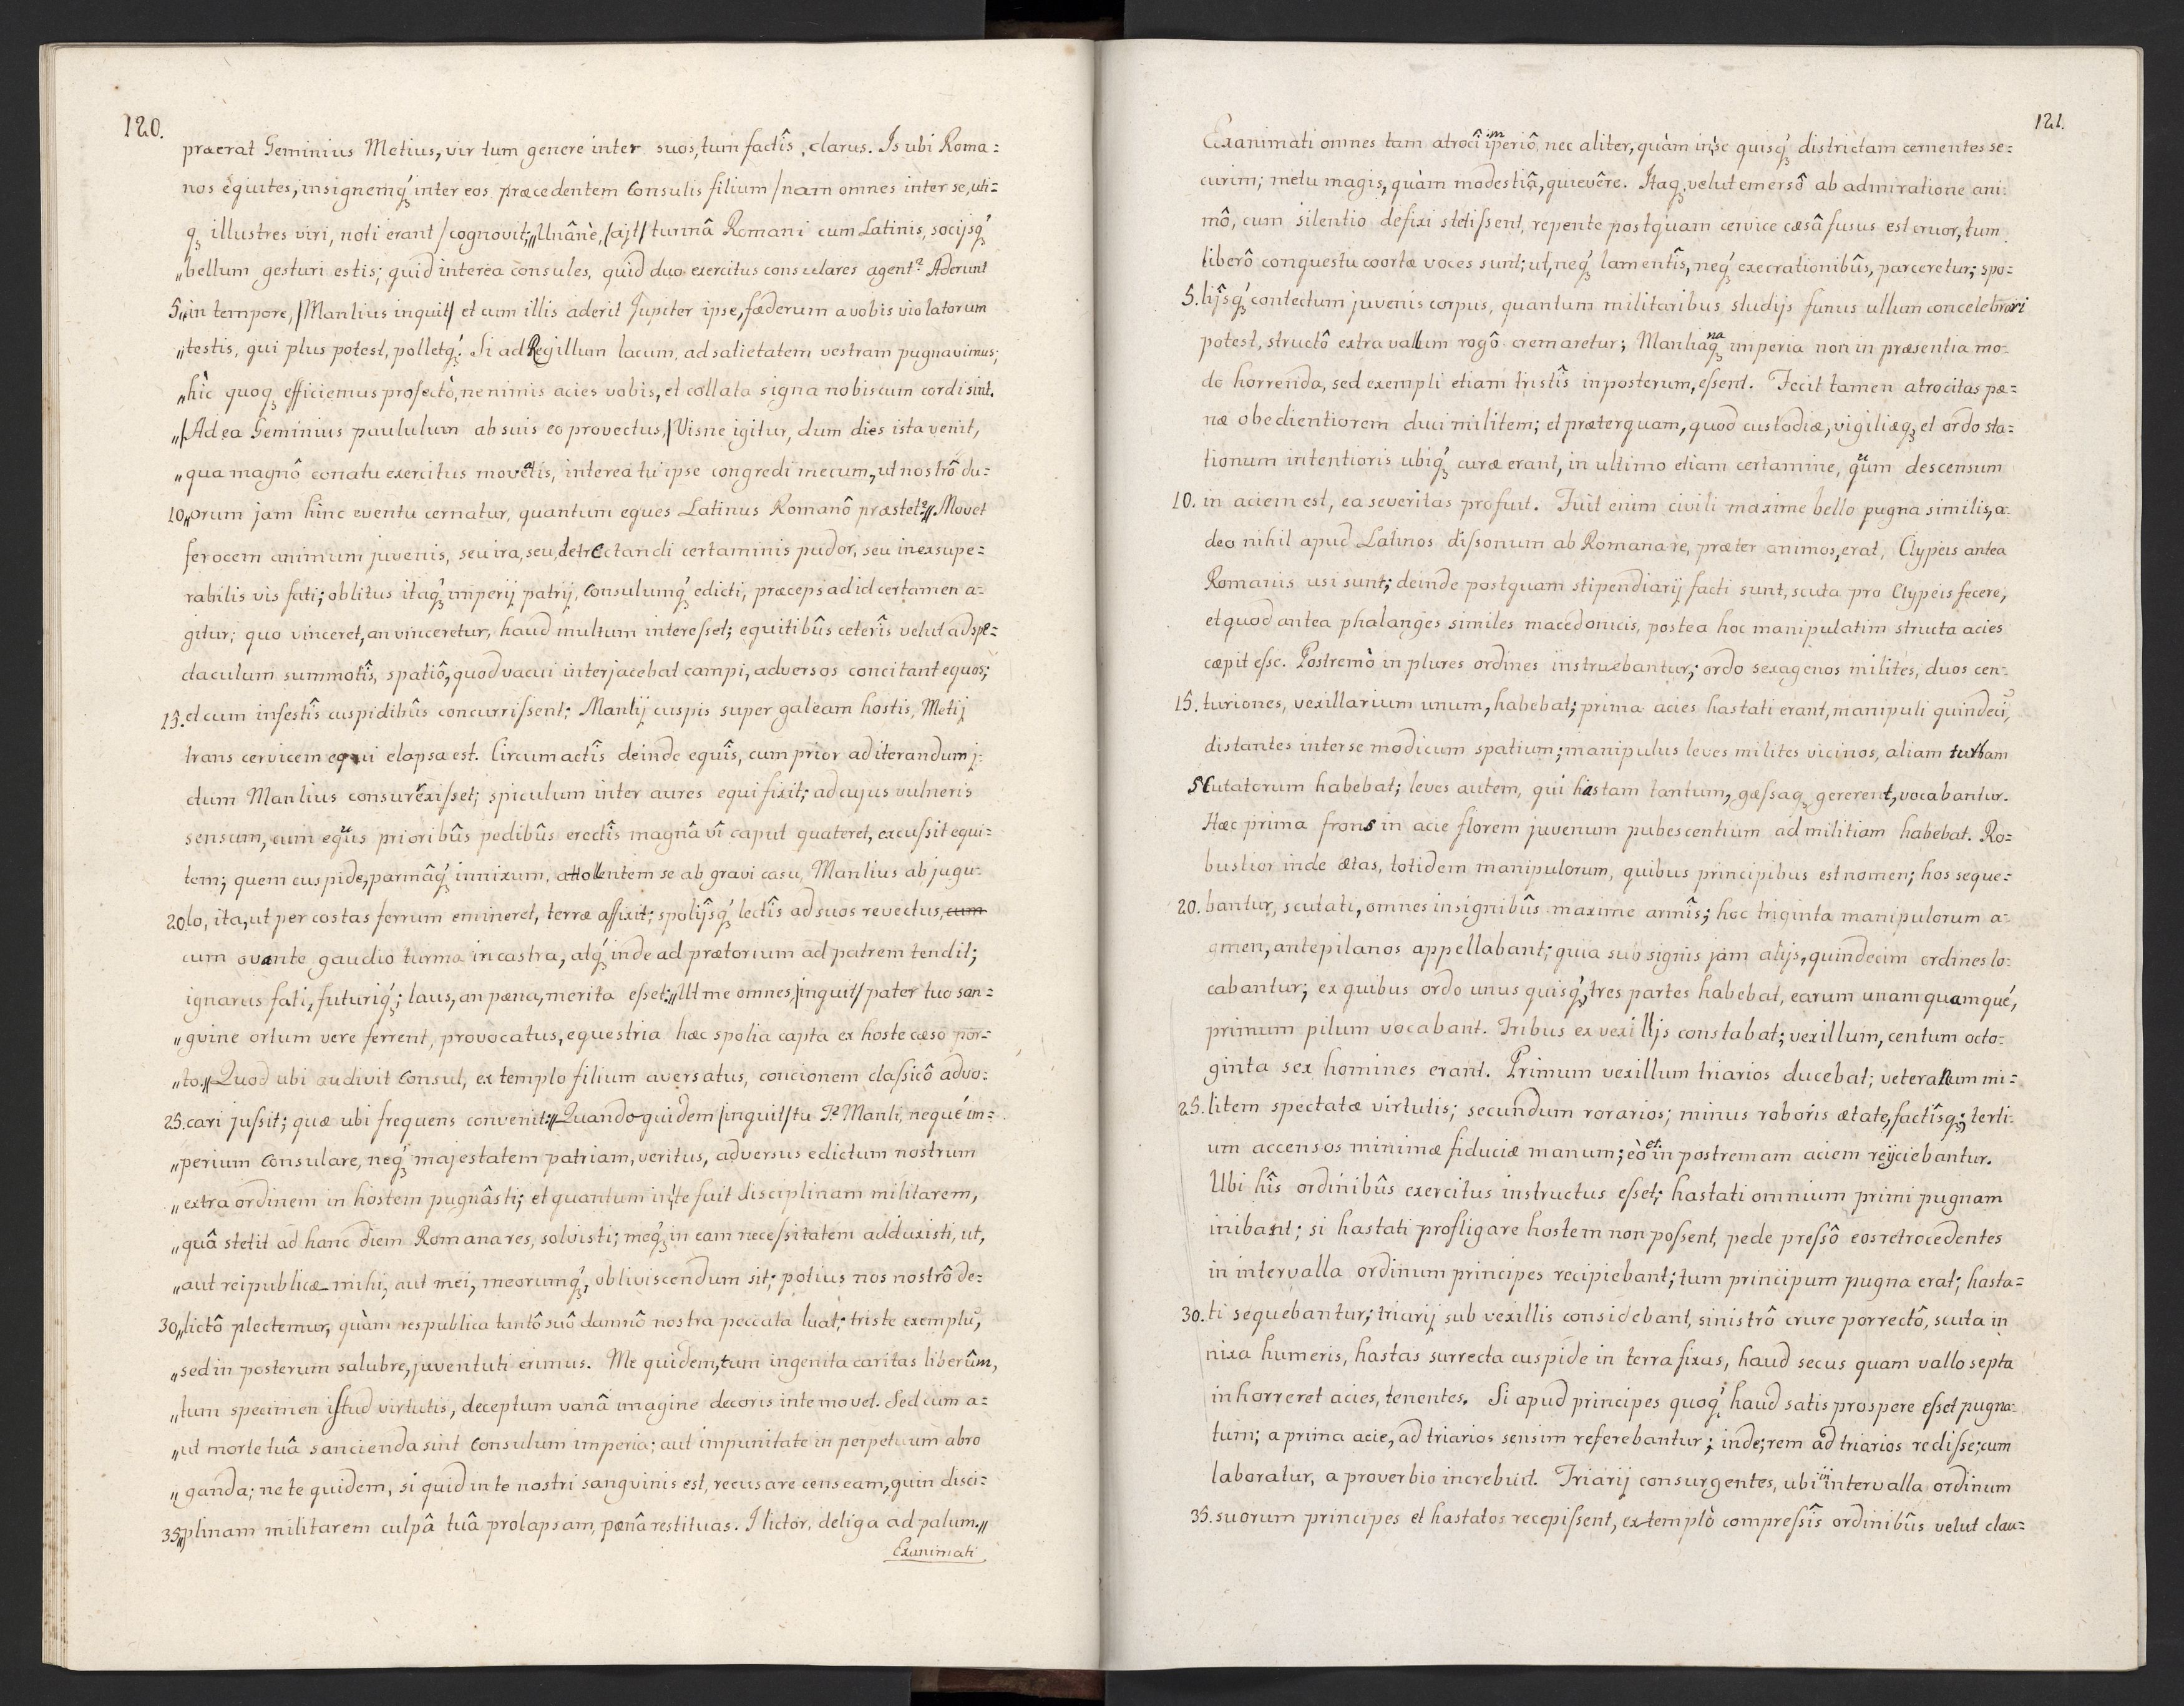 120.
præerat Geminius Metius, vir tum genere inter suos, tum factîs, clarus. Is ubi Roma=
nos equites, insignemq́ꝫ inter eos præcedentem Consulis filium /nam omnes inter se, uti=
qꝫ illustres viri, noti erant/ cognovit; „Unânè, /ajt/ turmâ Romani cum Latinis, socijsq́ꝫ
„bellum gesturi estis; quid interea consules, quid duo exercitus consulares agent? Aderunt
5. „in tempore, /Manlius inquit/ et cum illis aderit Jupiter ipse, fæderum a vobis violatorum
„testis, qui plus potest, polletq́ꝫ. Si ad Regillum lacum, ad satietatem vestram pugnavimus;
„hìc quoqꝫ efficiemus profectò, ne nimis acies vobis, et collata signa nobiscum cordi sint.
„/Ad ea Geminius paululum ab suis eo provectus,/ Visne igitur, dum dies ista venit,
„qua magnô conatu exercitus movetis, interea tu ipse congredi mecum, ut nostrô du=
10 „orum jam hinc eventu cernatur, quantum eques Latinus Romanô præstet?„ Movet
ferocem animum juvenis, seu ira, seu, detrectandi certaminis pudor, seu inexsupe=
rabilis vis fati; oblitus itaq́ꝫ imperij patrij, Consulumq́ꝫ edicti, præceps ad id certamen a=
gitur; quo vinceret, an vinceretur, haud multum interesset; equitibûs ceterîs velut ad spe=
ctaculum summotîs, spatiô, quod vacui interjacebat campi, adversos concitant equos;
15. et cum infestîs cuspidibûs concurrissent; Manlij cuspis super galeam hostis, Metij
trans cervicem equi elapsa est. Circumactîs deinde equîs, cum prior ad iterandum j=
ctum Manlius consurrexisset; spiculum inter aures equi fixit; ad cujus vulneris
sensum, cum equus prioribûs pedibûs erectîs magnâ vî caput quateret, excussit equi=
tem; quem cuspide, parmâq́ꝫ innixum, attollentem se ab gravi casu, Manlius ab jugu=
20 lo, ita, ut per costas ferrum emineret, terræ affixit; spolijsq́ꝫ lectîs ad suos revectus, cum
cum ovante gaudio turma in castra, atq́ꝫ inde ad prætorium ad patrem tendit;
ignarus fati, futuriq́ꝫ; laus, an pæna, merita esset; „Ut me omnes, /inquit/ pater tuo san=
„gvine ortum vere ferrent, provocatus, equestria hæc spolia capta ex hoste cæso por=
„to.„ Quod ubi audivit Consul, extemplo filium aversatus, concionem classicô advo=
25. cari jussit; quæ ubi frequens convenit: „Quandoquidem /inquit/ tu T. Manli, nequé im=
„perium Consulare, neq́ꝫ majestatem patriam, veritus, adversus edictum nostrum
„extra ordinem in hostem pugnâsti; et quantum in te fuit disciplinam militarem,
„quâ stetit ad hanc diem Romana res, solvisti; meq́ꝫ in eam necessitatem adduxisti, ut,
„aut reipublicæ mihi, aut mei, meorumq́ꝫ, obliviscendum sit; potius nos nostrô de=
30 „lictô plectemur, quàm respublica tantô suô damnô nostra peccata luat; triste exemplū,
„sed in posterum salubre, juventuti erimus. Me quidem, tum ingenita caritas liberûm,
„tum specimen istud virtutis, deceptum vanâ imagine decoris in te movet. Sed cum a=
„ut morte tuâ sancienda sint Consulum imperia; aut impunitate in perpetuum abro
„ganda; ne te quidem, si quid in te nostri sanguinis est, recusare censeam, quin disci=
35 „plinam militarem culpâ tuâ prolapsam, pænâ restituas. I lictor, deliga ad palum.„
Exanimati
121.
Exanimati omnes tam atrocî imperiô, nec aliter, quàm in se quisq́ꝫ districtam cernentes se=
curim; metu magis, quàm modestiâ, quievêre. Itaqꝫ velut emersô ab admiratione ani=
mô, cum silentio defixi stetissent, repente postquam cervice cæsâ fusus est cruor, tum
liberô conquestu coortæ voces sunt; ut, neq́ꝫ lamentîs, neq́ꝫ execrationibûs, parceretur; spo=
5. lijsq́ꝫ contectum juvenis corpus, quantum militaribus studijs funus ullum concelebrari
potest, structô extra vallum rogô cremaretur; Manlianaqꝫ imperia non in præsentia mo=
do horrenda, sed exempli etiam tristîs in posterum, essent. Fecit tamen atrocitas pæ=
næ obedientiorem duci militem; et præterquam, quod custodiæ, vigiliæqꝫ, et ordo sta=
tionum intentioris ubiq́ꝫ curæ erant, in ultimo etiam certamine, quum descensum
10. in aciem est, ea severitas profuit. Fuit enim civili maxime bello pugna similis, a=
deo nihil apud Latinos dissonum ab Romana re, præter animos, erat, Clypeis antea
Romanis usi sunt; deinde postquam stipendiarij facti sunt, scuta pro Clypeis fecere;
et quod antea phalanges similes macedonicis, postea hoc manipulatim structa acies
cæpit esse. Postremò in plures ordines instruebantur; ordo sexagenos milites, duos cen=
15. turiones, vexillarium unum, habebat; prima acies hastati erant, manipuli quindecī,
distantes inter se modicum spatium; manipulus leves milites vicinos, aliam turbam
scutatorum habebat; leves autem, qui hastam tantum, gæssaqꝫ gererent, vocabantur.
Hæc prima frons in acie florem juvenum pubescentium ad militiam habebat. Ro=
bustior inde ætas, totidem manipulorum, quibus principibus est nomen; hos seque=
20. bantur, scutati, omnes insignibûs maxime armîs; hoc triginta manipulorum a=
gmen, antepilanos appellabant; quia sub signis jam alijs, quindecim ordines lo=
cabantur; ex quibus ordo unus quisq́ꝫ, tres partes habebat, earum unamquamqué,
primum pilum vocabant. Tribus ex vexillis constabat; vexillum, centum octo=
ginta sex homines erant. Primum vexillum triarios ducebat; veteranum mi=
25. litem spectatæ virtutis; secundum rorarios; minus roboris ætate, factîsqꝫ; terti=
um accensos minimæ fiduciæ manum; eò et in postremam aciem reijciebantur.
Ubi hîs ordinibûs exercitus instructus esset; hastati omnium primi pugnam
inibant; si hastati profligare hostem non possent, pede pressô eos retrocedentes
in intervalla ordinum principes recipiebant; tum principum pugna erat; hasta=
30. ti sequebantur; triarij sub vexillis considebant, sinistrô crure porrectô, scuta in
nixa humeris, hastas surrecta cuspide in terra fixas, haud secus quam vallo septa
inhorreret acies, tenentes. Si apud principes quoq́ꝫ haud satis prospere esset pugna=
tum; a prima acie, ad triarios sensim referebantur; inde; rem ad triarios redisse; cum
laboratur, a proverbio increbuit. Triarij consurgentes, ubi in intervalla ordinum
35. suorum principes et hastatos recepissent, extemplò compressîs ordinibûs velut clau=